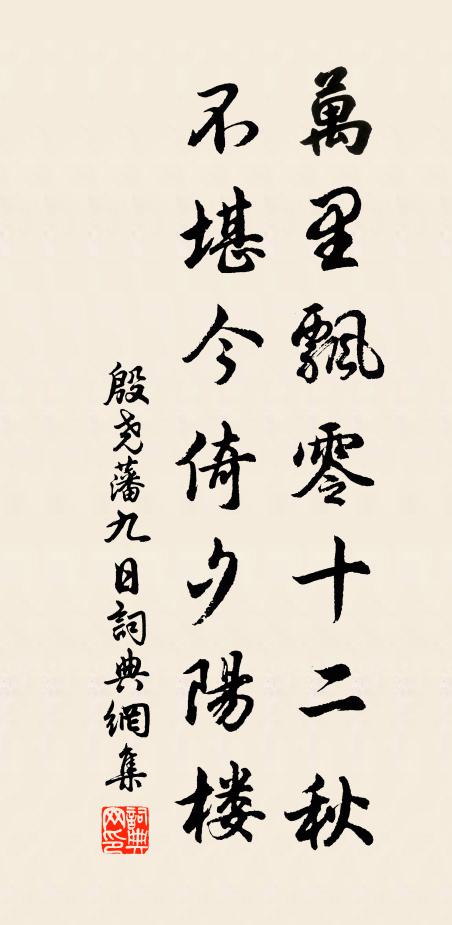 萬里飄零十二秋
不堪今倚夕陽楼
殷尧藩九日詞典網集
詞典
网印